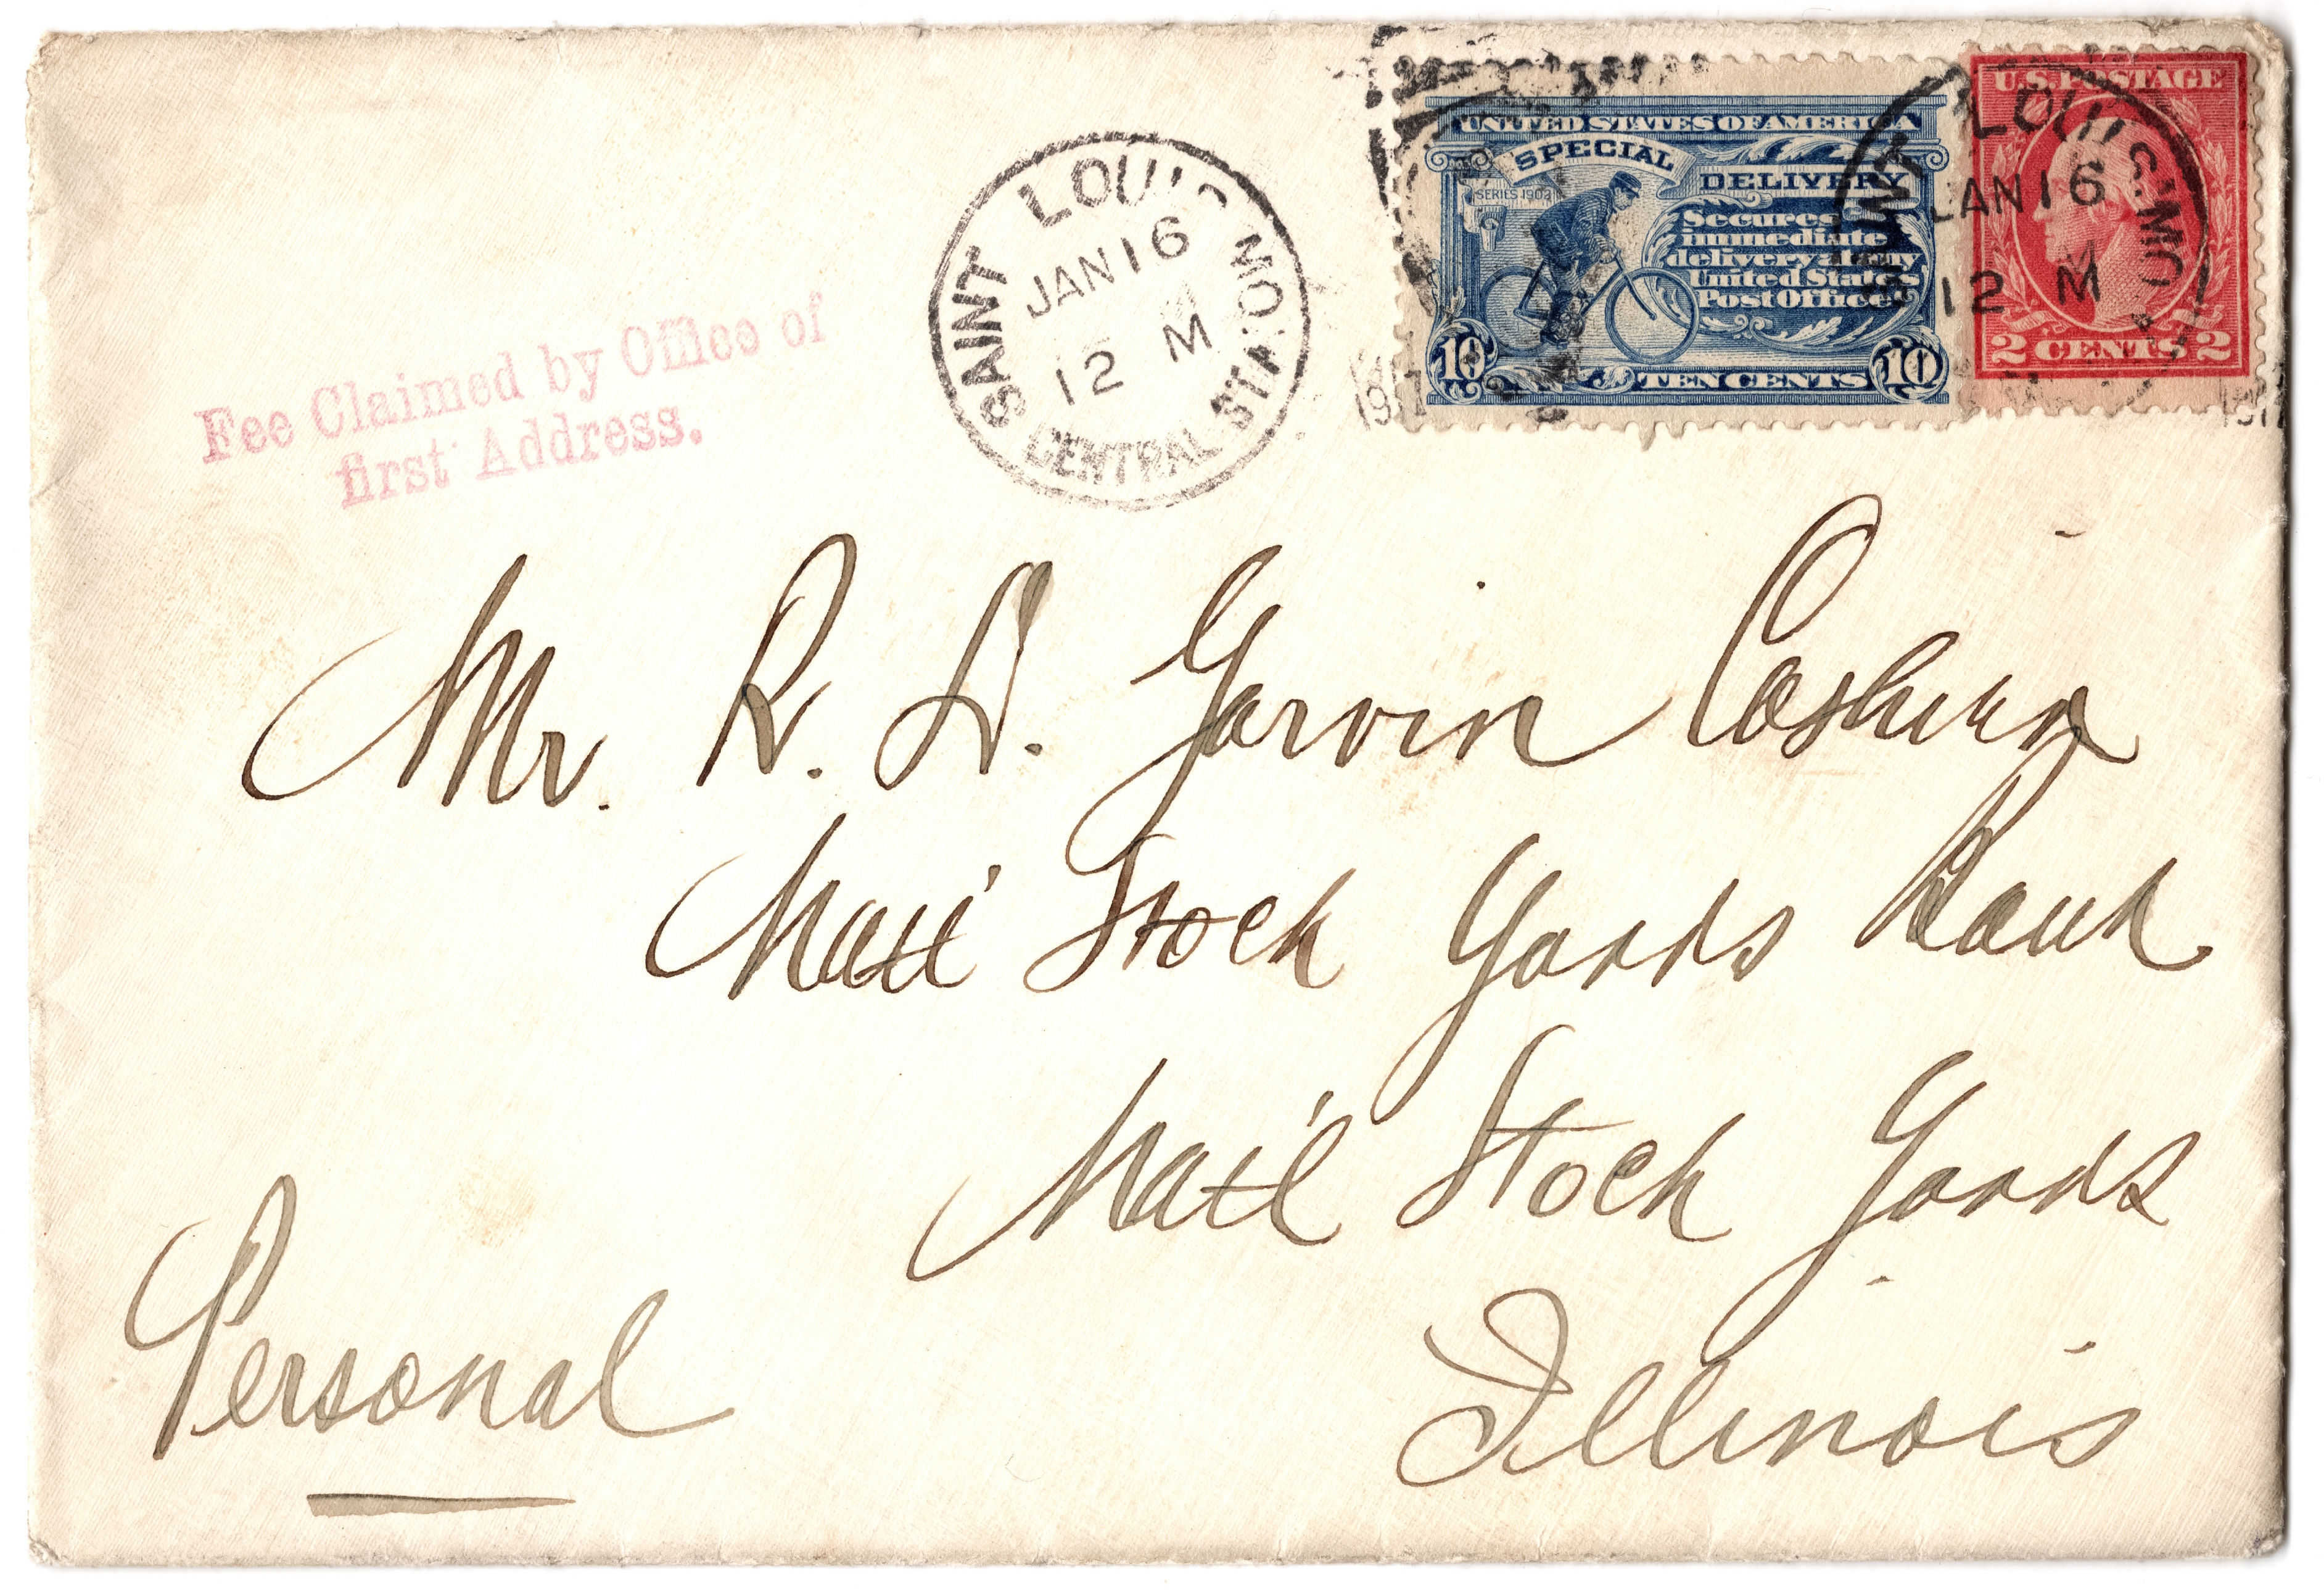 UNITED STATES OF AMERICA
SPECIAL
DELIVERY
SERIES 1902
Secures
immediate
delivery at any
United States
Post Office
10 TEN CENTS 10
U.S. POSTAGE
2 CENTS 2
SAINT LOUIS, MO.
JAN 16
12 M
1917
SAINT LOUIS, MO.
JAN 16
12 M
CENTRAL STA.
1917
Fee Claimed by Office of
first Address.
Mr. R. S. Garvin Cashier
Stock Yards Bank
Stock Yards
Illinois
Personal